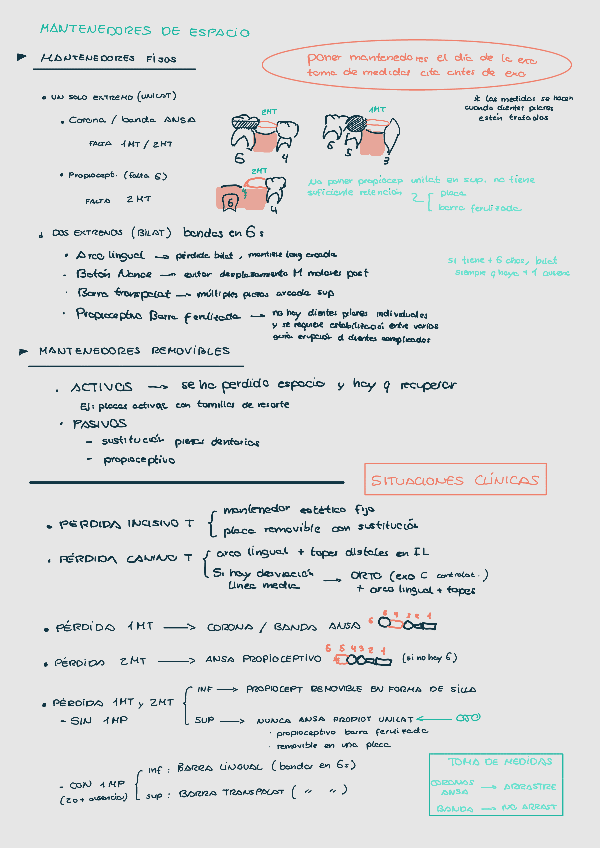 MANTENEDORES DE ESPACIO
MANTENEDORES FIJOS
poner mantenedores el día de la exo
toma de medidas cita antes de exo
• UN SOLO EXTREMO (UNILAT)
• Corona / banda ANSA
FALTA 1MT / 2MT
2MT
6 4
1MT
6 5 3
* las medidas se hacen
cuando dientes pilares
estén tratados
• Propiocept. (falta 6)
FALTA 2MT
2MT
6 4
No poner propiocep unilat en sup. no tiene
suficiente retención
placa
barra ferulizada
DOS EXTREMOS (BILAT) bandas en 6s
• Arco lingual → pérdida bilat, mantiene long arcada
• Botón Nance → evitar desplazamiento M molares post
• Barra transpalat → múltiples piezas arcada sup
• Propioceptivo Barra ferulizada → no hay dientes pilares individuales
y se requiere estabilización entre varios
guía erupción d dientes complicados
si tiene + 6 años, bilat
siempre q haya + 1 ausente
MANTENEDORES REMOVIBLES
• ACTIVOS → se ha perdido espacio y hay q recuperar
Ej: placas activas con tornillos de resorte
• PASIVOS
- sustitución piezas dentarias
- propioceptivo
SITUACIONES CLÍNICAS
• PÉRDIDA INCISIVO T
mantenedor estético fijo
placa removible con sustitución
• PÉRDIDA CANINO T
arco lingual + topes distales en IL
Si hay desviación
línea media
→ ORTO (exo C contralat.)
+ arco lingual + topes
• PÉRDIDA 1MT → CORONA / BANDA ANSA
• PÉRDIDA 2MT → ANSA PROPIOCEPTIVO
6 5 4 3 2 1
(si no hay 6)
• PÉRDIDA 1MT y 2MT
- SIN 1MP
INF → PROPIOCEPT REMOVIBLE EN FORMA DE SILLA
SUP → NUNCA ANSA PROPIOT UNILAT ← OJO
• propioceptivo barra ferulizada
• removible en una placa
- CON 1MP
(20 + ausencias)
inf: BARRA LINGUAL (bandas en 6s)
sup: BARRA TRANSPALAT ( " " )
TOMA DE MEDIDAS
CORONAS
ANSA → ARRASTRE
BANDA → NO ARRAST